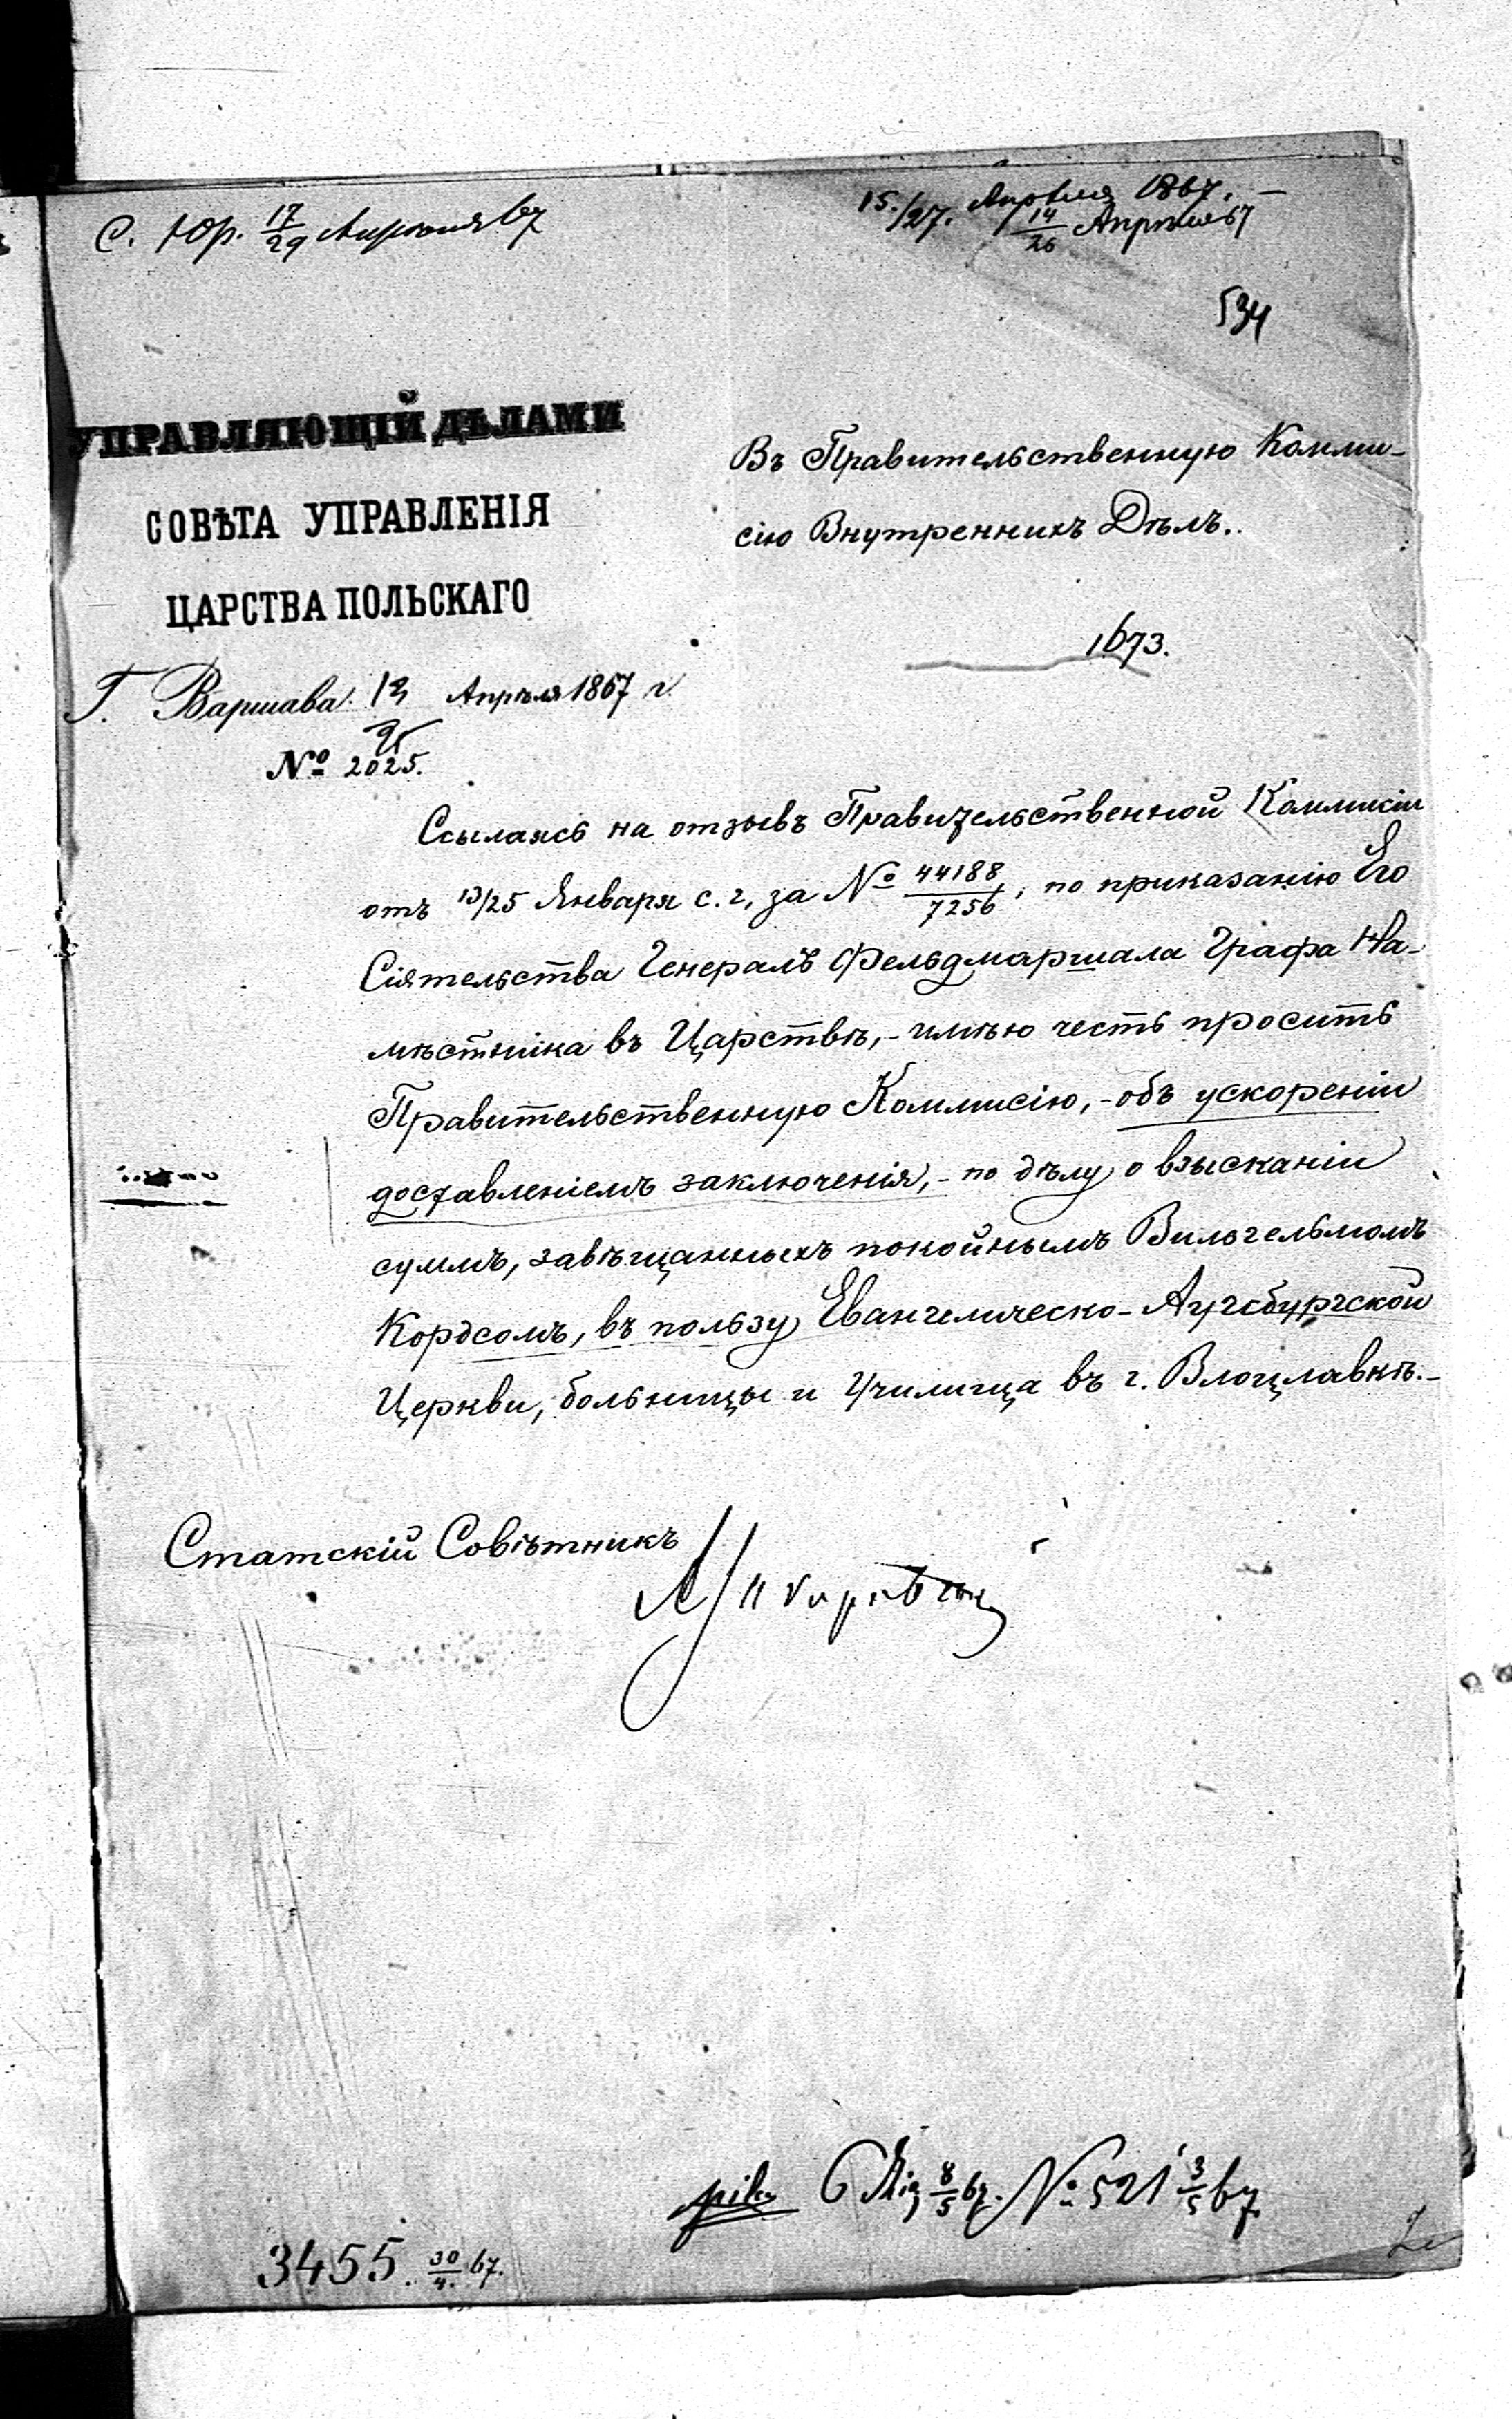 С. Юр. 17/29 Апрѣля 67
15./27. Апрѣля 1867. –
14/26 Апрѣля 67
534
УПРАВЛЯЮЩІЙ ДѢЛАМИ
СОВѢТА УПРАВЛЕНІЯ
ЦАРСТВА ПОЛЬСКАГО
Г. Варшава. 13/25 Апрѣля 1867 г.
№ 2025.
Въ Правительственную Комми-
сію Внутреннихъ Дѣлъ.
1673.
Ссылаясь на отзывъ Правительственной Коммисіи
отъ 13/25 Января с. г, за № 44188/7256, по приказанію Его
Сіятельства Генералъ Фельдмаршала Графа На-
мѣстника въ Царствѣ,- имѣю честь просить
Правительственную Коммисію,- объ ускореніи
доставленіемъ заключенія,- по дѣлу о взысканіи
суммъ, завѣщанныхъ покойнымъ Вильгельмомъ
Кордсомъ, въ пользу Евангелическо-Аугсбургской
Церкви, больницы и Училища въ г. Влоцлавкѣ.-
Статскій Совѣтникъ
№ 521 3/5 67
3455. 30/4. 67.